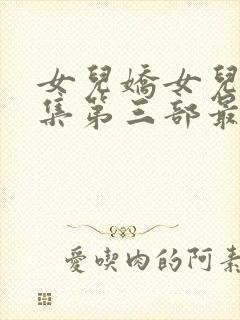 女兒嬌女兒
集第三部最
愛喫肉的阿素